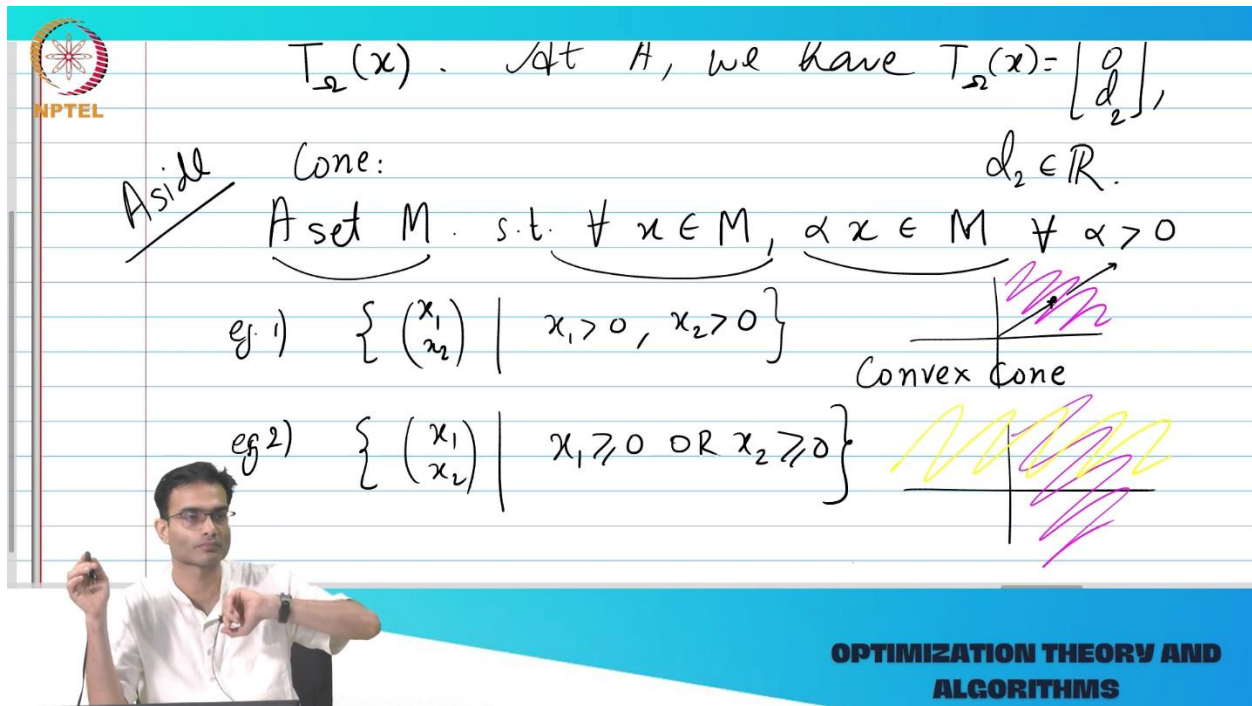 NPTEL
T_Ω(x). At A, we have T_Ω(x) = [0 d_2],
Aside
Cone:
d_2 ∈ ℝ.
A set M. s.t. ∀ x ∈ M, αx ∈ M ∀ α > 0
eg. 1) { (x_1 x_2) | x_1 > 0, x_2 > 0 }
Convex Cone
eg 2) { (x_1 x_2) | x_1 ⩾ 0 OR x_2 ⩾ 0 }
OPTIMIZATION THEORY AND
ALGORITHMS